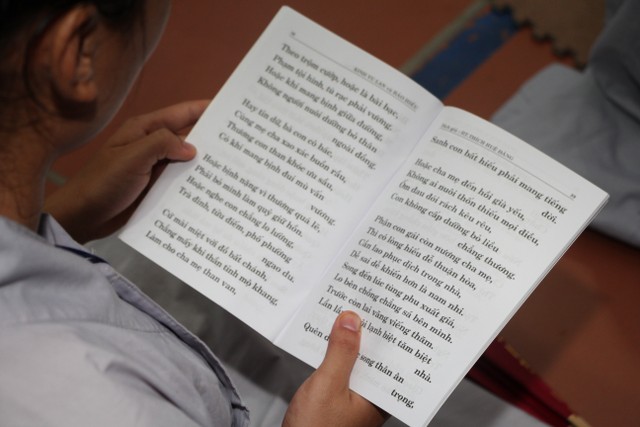 KINH VU LAN VÀ BÁO HIẾU
Theo trộm cướp, hoặc là bài bạc,
Phạm tội hình, tù rạc phải vương,
Hoặc khi mang bịnh giữa đường,
Không người nuôi dưỡng bỏ thân
ngoài đồng.
Hay tin dữ, bà con cô bác,
Cùng mẹ cha xao xác buồn rầu,
Thương con than khóc âu sầu,
Có khi mang bịnh đui mù vấn
vương.
Hoặc bịnh nặng vì thương quá lẽ,
Phải bỏ mình làm quỷ giữ hồn,
Hoặc nghe con chẳng lo lường,
Trà đình, tửu điếm, phố phường
ngao du.
Cứ mải miệt với đồ bất chánh,
Chẳng mấy khi thần tỉnh mộ khang,
Làm cho cha mẹ than van,
Sanh con bất hiếu phải mang tiếng
đời.
Hoặc cha mẹ đến hồi già yếu,
Không ai nuôi thốn thiếu mọi điều,
Ốm đau đói rách kêu rêu,
Con không cấp dưỡng bỏ liều
chẳng thương.
Phận con gái còn nương cha mẹ,
Thì có lòng hiếu đễ thuận hòa,
Cần lao phục dịch trong nhà,
Dễ sai dễ khiến hơn là nam nhi.
Song đến lúc tùng phu xuất giá,
Lo bên chồng chẳng sá bên mình.
Trước còn lai vãng viếng thăm,
Lần lần lạnh biệt tăm biệt
nhà.
Quên song thân ân
trọng,